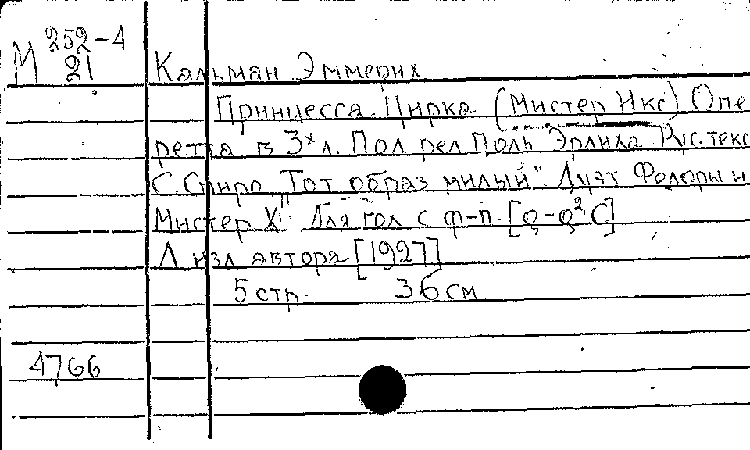 М 252-4
21
Кальман Эммерих
Принцесса Цирка (Мистер Икс) Опе
ретта в 3х л. Пол рел Поль Эрлиха Рус. текс
С. Спиро "Тот образ милый". Дуэт Федоры и
Мистер Х" Для гол с ф-п. [ – C]
Л изд автора [1927]
5 стр. 36 см
4766